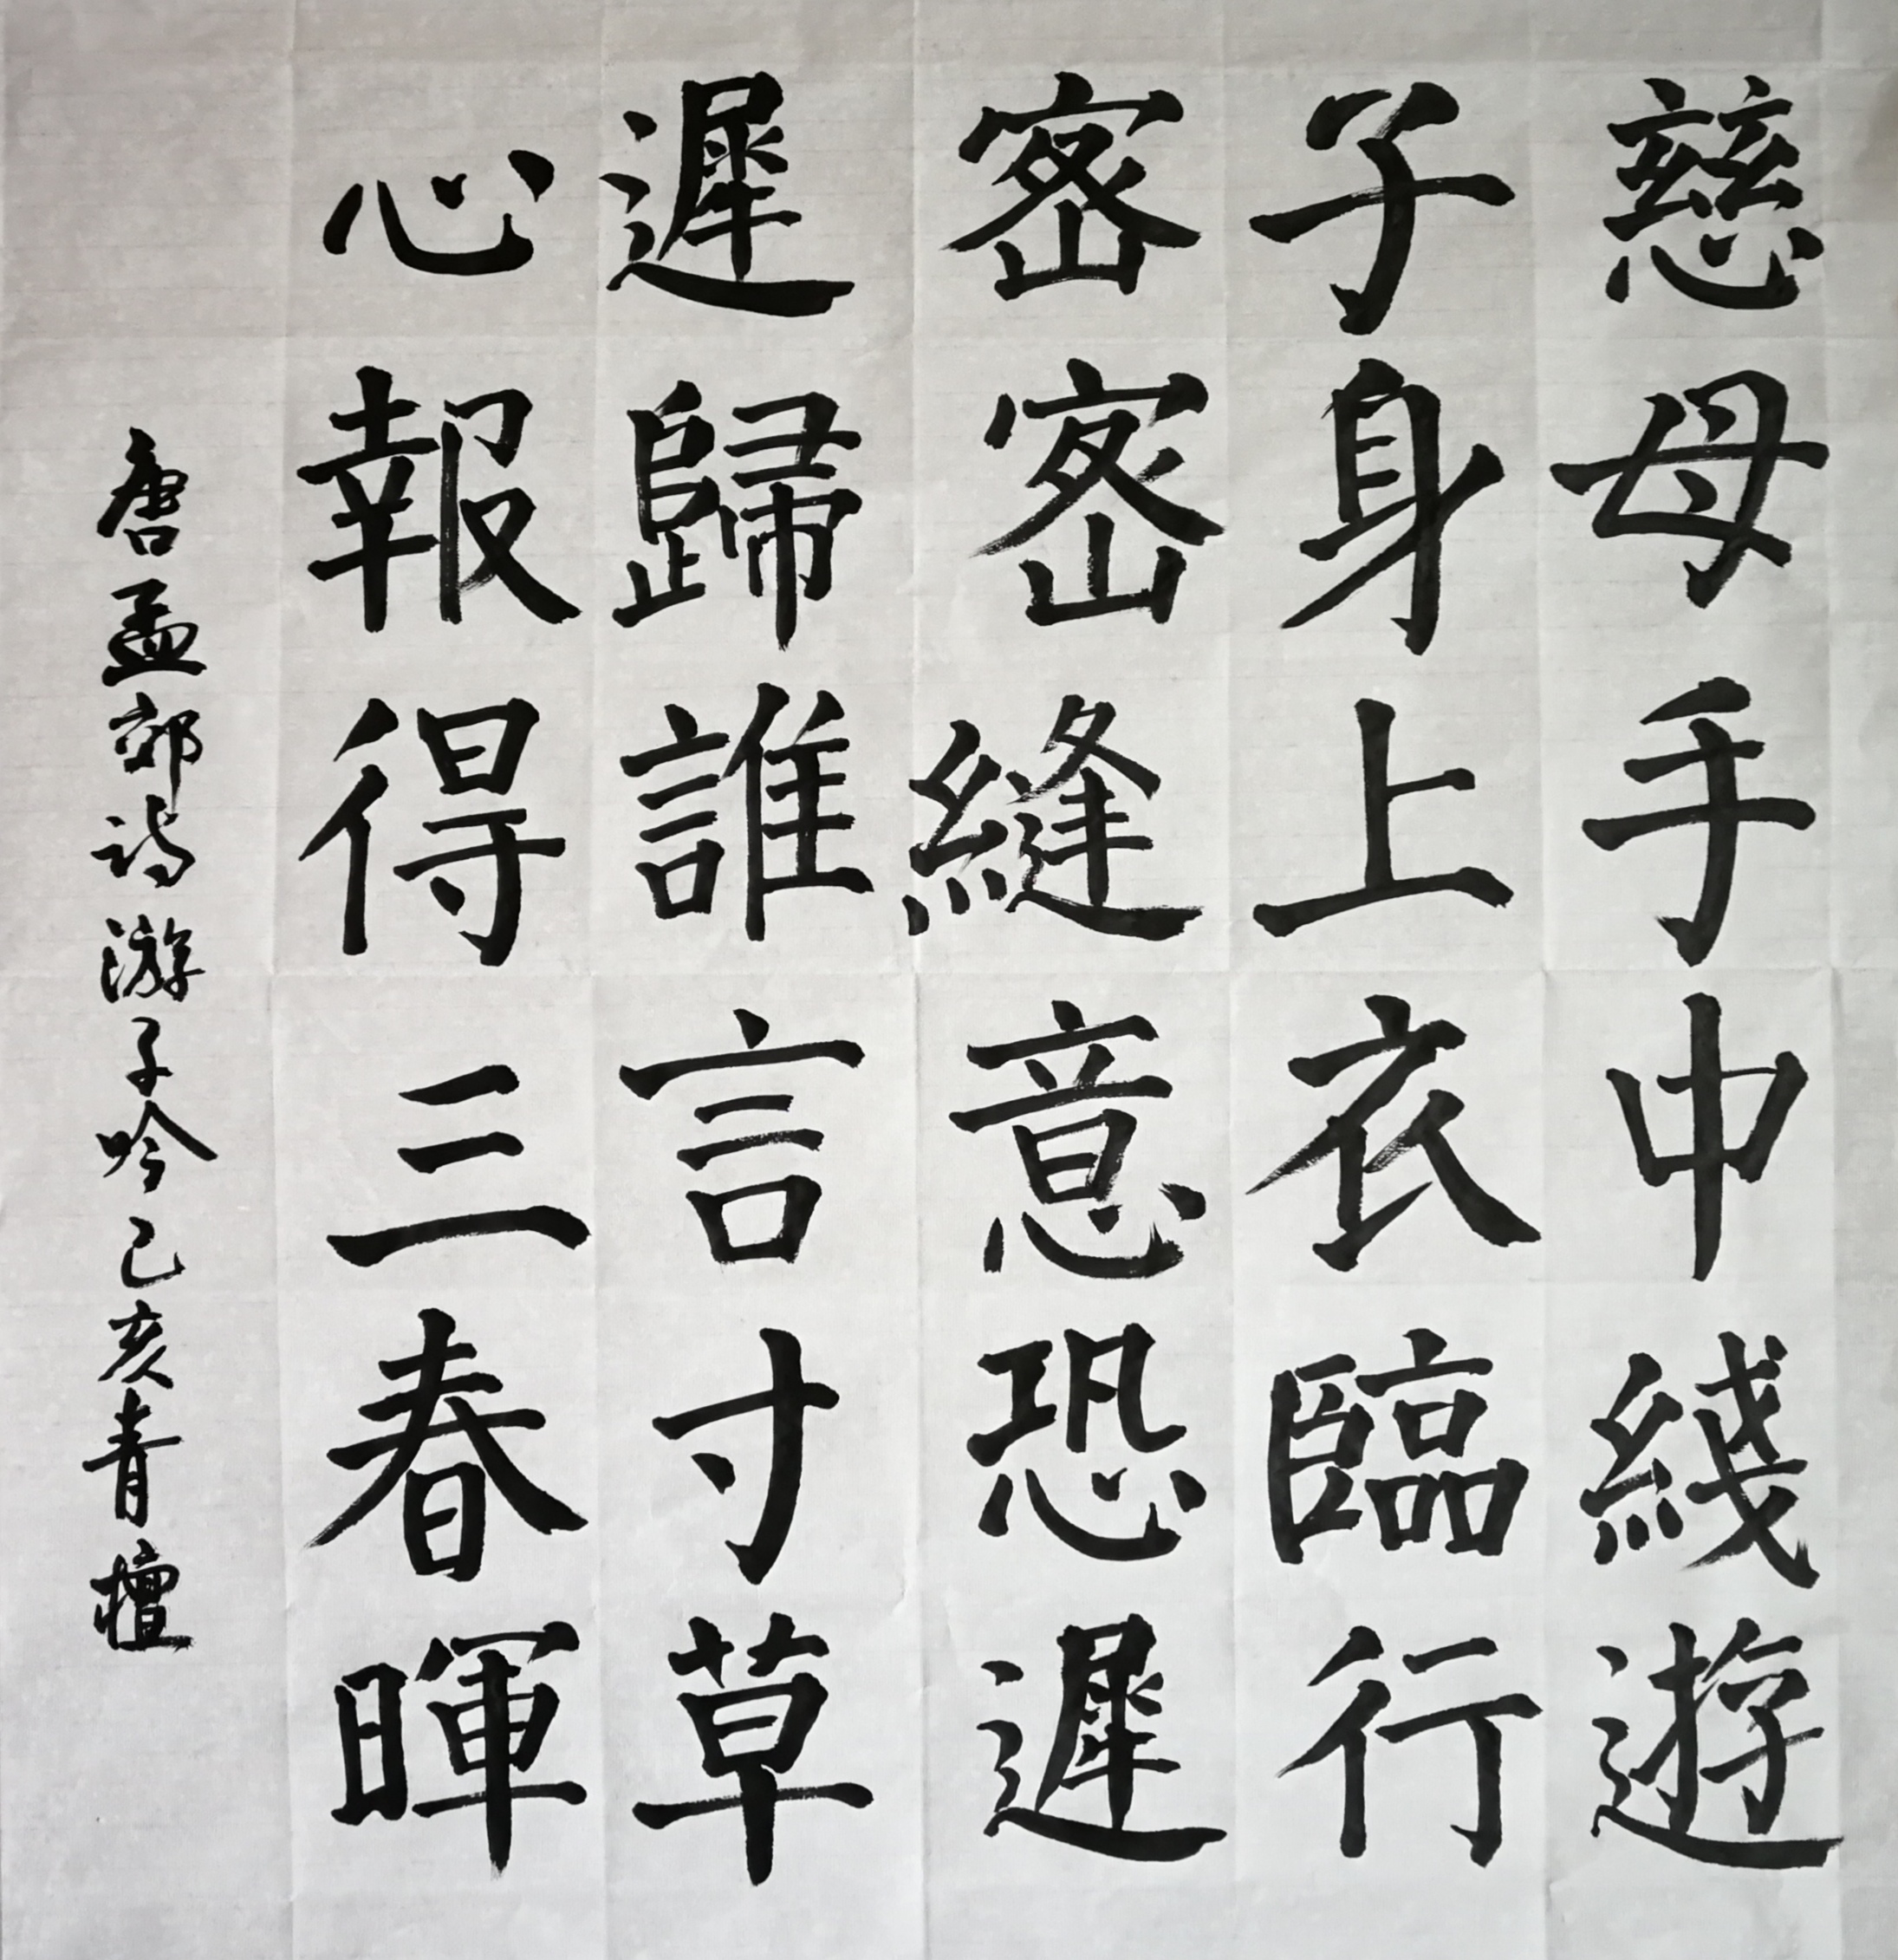 慈母手中綫遊
子身上衣臨行
密密縫意恐遲
遲歸誰言寸草
心報得三春暉
唐孟郊詩游子吟己亥青檀